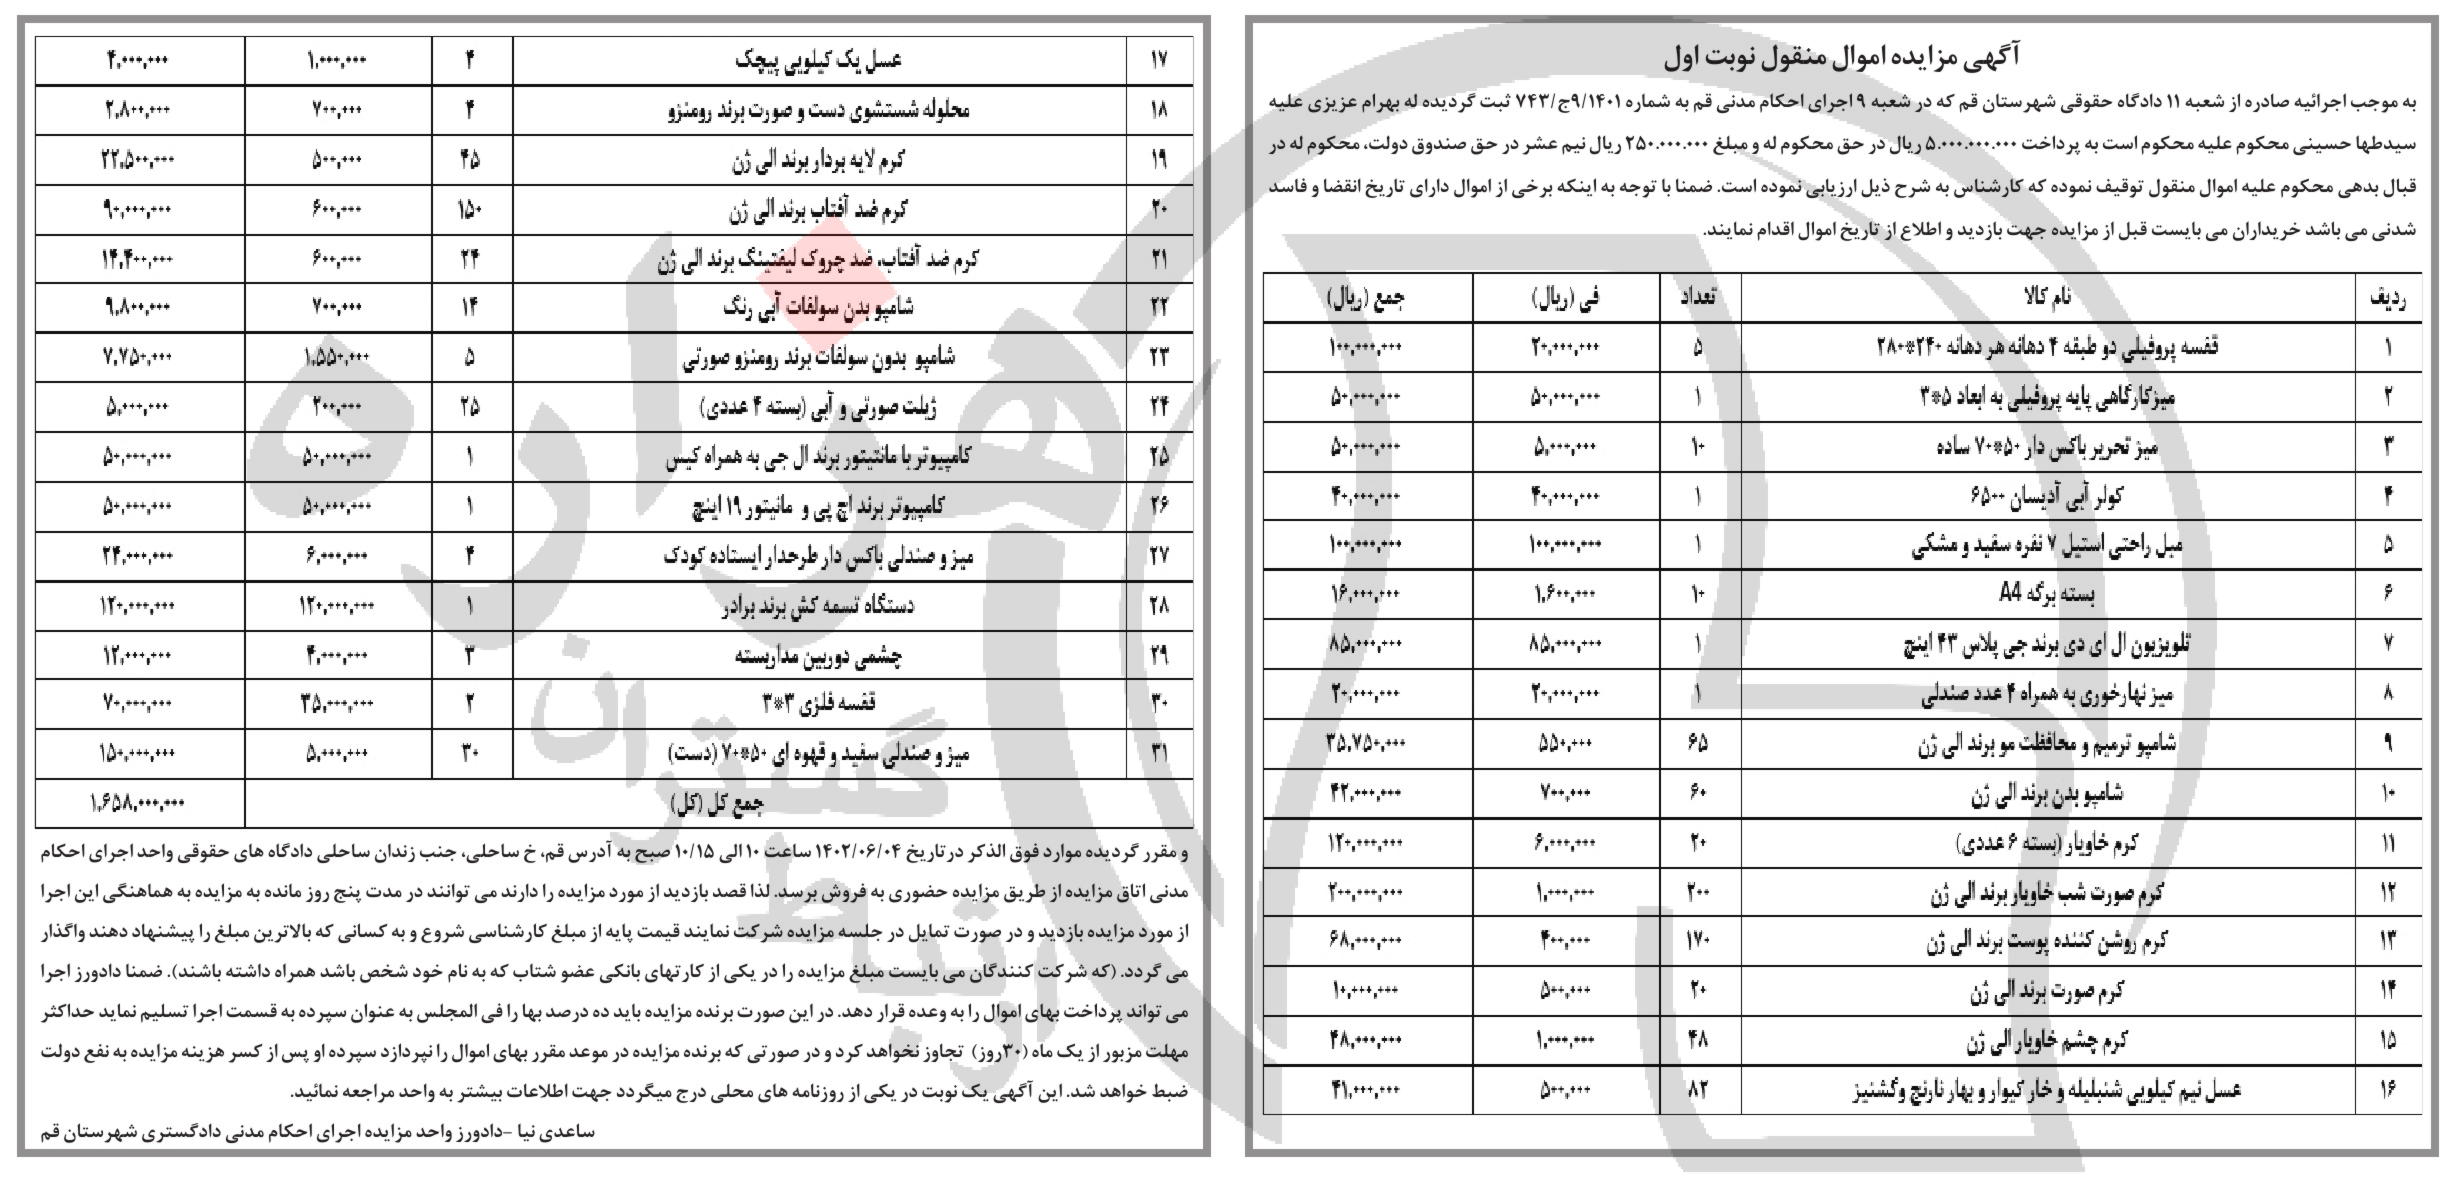 آگهی مزایده اموال منقول نوبت اول
به موجب اجرائیه صادره از شعبه ۱۱ دادگاه حقوقی شهرستان قم که در شعبه ۹ اجرای احکام مدنی قم به شماره ۹/۱۴۰۱ج/۷۴۳ ثبت گردیده له بهرام عزیزی علیه
سیدطها حسینی محکوم علیه محکوم است به پرداخت ۵.۰۰۰.۰۰۰.۰۰۰ ریال در حق محکوم له و مبلغ ۲۵۰.۰۰۰.۰۰۰ ریال نیم عشر در حق صندوق دولت، محکوم له در
قبال بدهی محکوم علیه اموال منقول توقیف نموده که کارشناس به شرح ذیل ارزیابی نموده است. ضمنا با توجه به اینکه برخی از اموال دارای تاریخ انقضا و فاسد
شدنی می باشد خریداران می بایست قبل از مزایده جهت بازدید و اطلاع از تاریخ اموال اقدام نمایند.
ردیف نام کالا تعداد فی (ریال) جمع (ریال)
۱ قفسه پروفیلی دو طبقه ۴ دهانه هر دهانه ۲۴۰*۲۸۰ ۵ ۲۰,۰۰۰,۰۰۰ ۱۰۰,۰۰۰,۰۰۰
۲ میزکارگاهی پایه پروفیلی به ابعاد ۵*۳ ۱ ۵۰,۰۰۰,۰۰۰ ۵۰,۰۰۰,۰۰۰
۳ میز تحریر باکس دار ۵۰*۷۰ ساده ۱۰ ۵,۰۰۰,۰۰۰ ۵۰,۰۰۰,۰۰۰
۴ کولر آبی آدیسان ۶۵۰۰ ۱ ۴۰,۰۰۰,۰۰۰ ۴۰,۰۰۰,۰۰۰
۵ مبل راحتی استیل ۷ نفره سفید و مشکی ۱ ۱۰۰,۰۰۰,۰۰۰ ۱۰۰,۰۰۰,۰۰۰
۶ بسته برگه A4 ۱۰ ۱,۶۰۰,۰۰۰ ۱۶,۰۰۰,۰۰۰
۷ تلویزیون ال ای دی برند جی پلاس ۴۳ اینچ ۱ ۸۵,۰۰۰,۰۰۰ ۸۵,۰۰۰,۰۰۰
۸ میز نهارخوری به همراه ۴ عدد صندلی ۱ ۲۰,۰۰۰,۰۰۰ ۲۰,۰۰۰,۰۰۰
۹ شامپو ترمیم و محافظت مو برند الی ژن ۶۵ ۵۵۰,۰۰۰ ۳۵,۷۵۰,۰۰۰
۱۰ شامپو بدن برند الی ژن ۶۰ ۷۰۰,۰۰۰ ۴۲,۰۰۰,۰۰۰
۱۱ کرم خاویار (بسته ۶ عددی) ۲۰ ۶,۰۰۰,۰۰۰ ۱۲۰,۰۰۰,۰۰۰
۱۲ کرم صورت شب خاویار برند الی ژن ۲۰۰ ۱,۰۰۰,۰۰۰ ۲۰۰,۰۰۰,۰۰۰
۱۳ کرم روشن کننده پوست برند الی ژن ۱۷۰ ۴۰۰,۰۰۰ ۶۸,۰۰۰,۰۰۰
۱۴ کرم صورت برند الی ژن ۲۰ ۵۰۰,۰۰۰ ۱۰,۰۰۰,۰۰۰
۱۵ کرم چشم خاویار الی ژن ۴۸ ۱,۰۰۰,۰۰۰ ۴۸,۰۰۰,۰۰۰
۱۶ عسل نیم کیلویی شنبلیله و خار کیوار و بهار نارنج وگشنیز ۸۲ ۵۰۰,۰۰۰ ۴۱,۰۰۰,۰۰۰
۱۷ عسل یک کیلویی پیچک ۴ ۱,۰۰۰,۰۰۰ ۴,۰۰۰,۰۰۰
۱۸ محلوله شستشوی دست و صورت برند رومنزو ۴ ۷۰۰,۰۰۰ ۲,۸۰۰,۰۰۰
۱۹ کرم لایه بردار برند الی ژن ۴۵ ۵۰۰,۰۰۰ ۲۲,۵۰۰,۰۰۰
۲۰ کرم ضد آفتاب برند الی ژن ۱۵۰ ۶۰۰,۰۰۰ ۹۰,۰۰۰,۰۰۰
۲۱ کرم ضد آفتاب، ضد چروک لیفتینگ برند الی ژن ۲۴ ۶۰۰,۰۰۰ ۱۴,۴۰۰,۰۰۰
۲۲ شامپو بدن سولفات آبی رنگ ۱۴ ۷۰۰,۰۰۰ ۹,۸۰۰,۰۰۰
۲۳ شامپو بدون سولفات برند رومنزو صورتی ۵ ۱,۵۵۰,۰۰۰ ۷,۷۵۰,۰۰۰
۲۴ ژیلت صورتی و آبی (بسته ۴ عددی) ۲۵ ۲۰۰,۰۰۰ ۵,۰۰۰,۰۰۰
۲۵ کامپیوتر با مانتیتور برند ال جی به همراه کیس ۱ ۵۰,۰۰۰,۰۰۰ ۵۰,۰۰۰,۰۰۰
۲۶ کامپیوتر برند اچ پی و مانیتور ۱۹ اینچ ۱ ۵۰,۰۰۰,۰۰۰ ۵۰,۰۰۰,۰۰۰
۲۷ میز و صندلی باکس دار طرحدار ایستاده کودک ۴ ۶,۰۰۰,۰۰۰ ۲۴,۰۰۰,۰۰۰
۲۸ دستگاه تسمه کش برند برادر ۱ ۱۲۰,۰۰۰,۰۰۰ ۱۲۰,۰۰۰,۰۰۰
۲۹ چشمی دوربین مداربسته ۳ ۴,۰۰۰,۰۰۰ ۱۲,۰۰۰,۰۰۰
۳۰ قفسه فلزی ۳*۳ ۲ ۳۵,۰۰۰,۰۰۰ ۷۰,۰۰۰,۰۰۰
۳۱ میز و صندلی سفید و قهوه ای ۵۰*۷۰ (دست) ۳۰ ۵,۰۰۰,۰۰۰ ۱۵۰,۰۰۰,۰۰۰
جمع کل (کل) ۱,۶۵۸,۰۰۰,۰۰۰
و مقرر گردیده موارد فوق الذکر در تاریخ ۱۴۰۲/۰۶/۰۴ ساعت ۱۰ الی ۱۰/۱۵ صبح به آدرس قم، خ ساحلی، جنب زندان ساحلی دادگاه های حقوقی واحد اجرای احکام
مدنی اتاق مزایده از طریق مزایده حضوری به فروش برسد. لذا قصد بازدید از مورد مزایده را دارند می توانند در مدت پنج روز مانده به مزایده به هماهنگی این اجرا
از مورد مزایده بازدید و در صورت تمایل در جلسه مزایده شرکت نمایند قیمت پایه از مبلغ کارشناسی شروع و به کسانی که بالاترین مبلغ را پیشنهاد دهند واگذار
می گردد. (که شرکت کنندگان می بایست مبلغ مزایده را در یکی از کارتهای بانکی عضو شتاب که به نام خود شخص باشد همراه داشته باشند). ضمنا دادورز اجرا
می تواند پرداخت بهای اموال را به وعده قرار دهد. در این صورت برنده مزایده باید ده درصد بها را فی المجلس به عنوان سپرده به قسمت اجرا تسلیم نماید حداکثر
مهلت مزبور از یک ماه (۳۰روز) تجاوز نخواهد کرد و در صورتی که برنده مزایده در موعد مقرر بهای اموال را نپردازد سپرده او پس از کسر هزینه مزایده به نفع دولت
ضبط خواهد شد. این آگهی یک نوبت در یکی از روزنامه های محلی درج میگردد جهت اطلاعات بیشتر به واحد مراجعه نمائید.
ساعدی نیا -دادورز واحد مزایده اجرای احکام مدنی دادگستری شهرستان قم
هزاره
ارتباط گستران